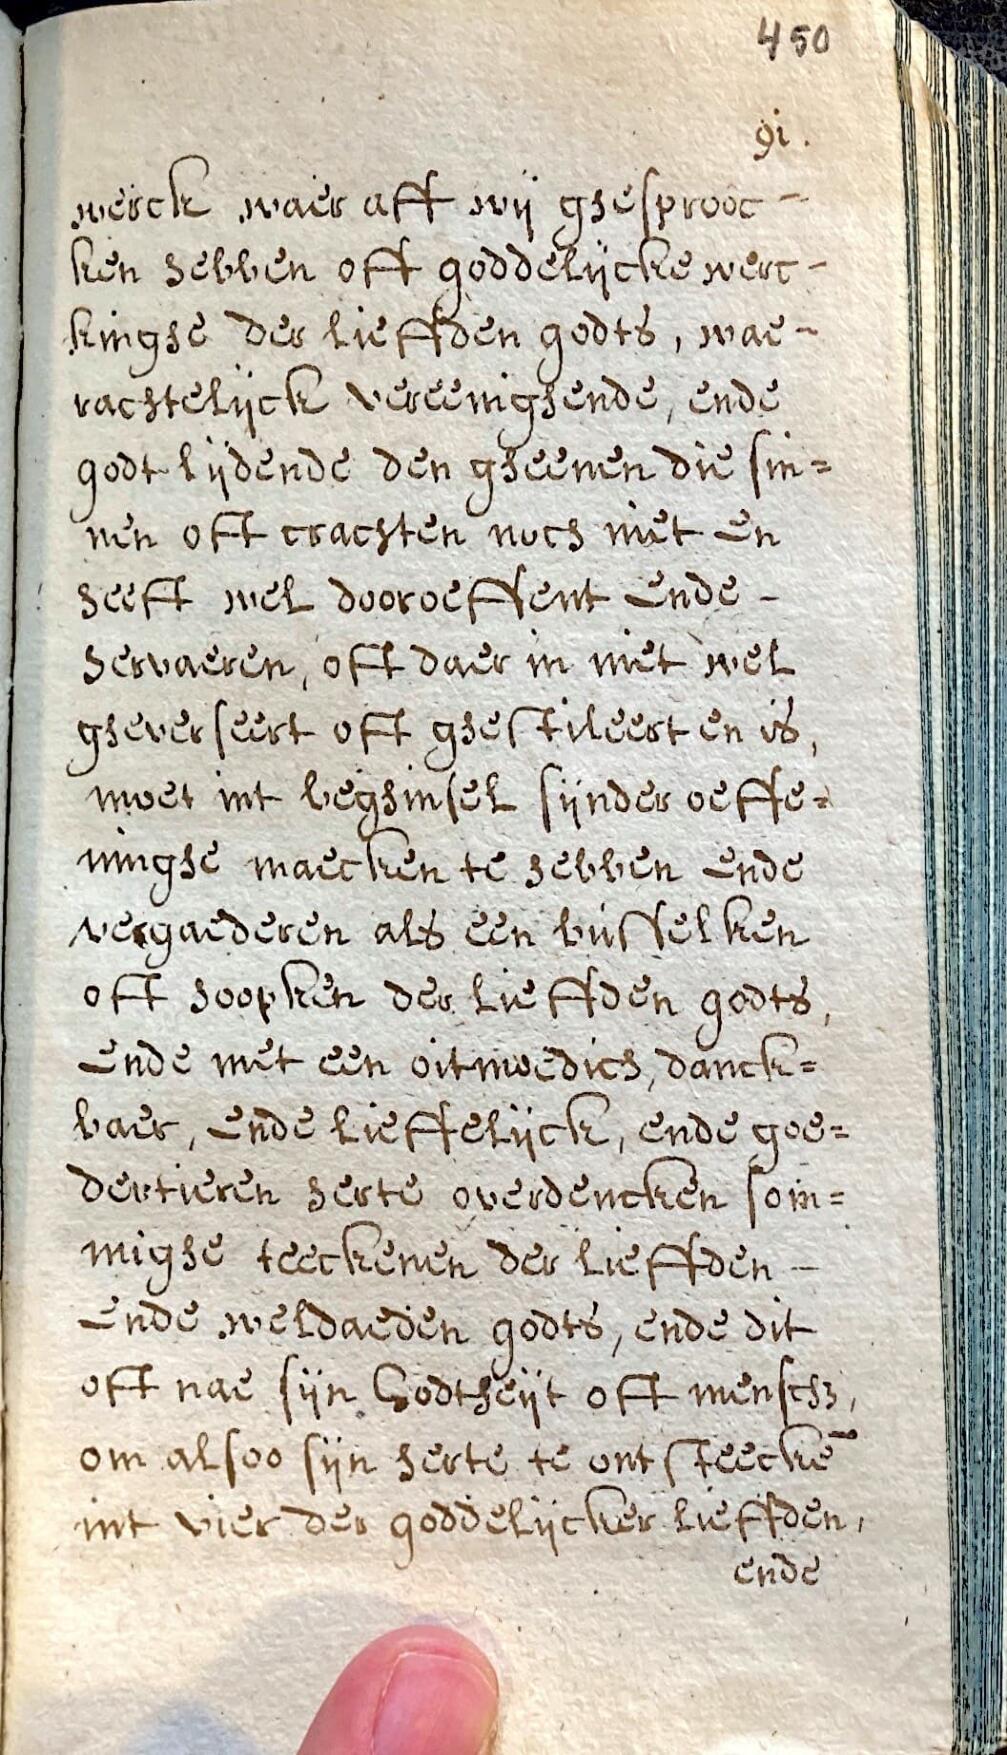 450
91.
werck waer aff wij ghesprooc -
ken hebben oft goddelijcke werc -
kinghe der lieffden godts, wae -
rachtelijck vereenighende, ende
godt lijdende den gheenen die sin =
nen oft crachten noch niet en
heeft wel dooroeffent ende -
hervaeren, oft daer in niet wel
gheverseert oft ghestileert en is,
moet int beghinsel sijnder oeffe =
ninghe maecken te hebben ende
vergaederen als een busselken
oft hoopken der lieffden godts,
ende met een oitmoedich, danck =
baer, ende lieffelijck, ende goe =
dertieren herte overdencken som =
mighe teeckenen der lieffden -
ende weldaeden godts, ende dit
oft nae sijn Godtheijt oft menschz,
om alsoo sijn herte te ontsteeckē
int vier der goddelijcker lieffden,
ende